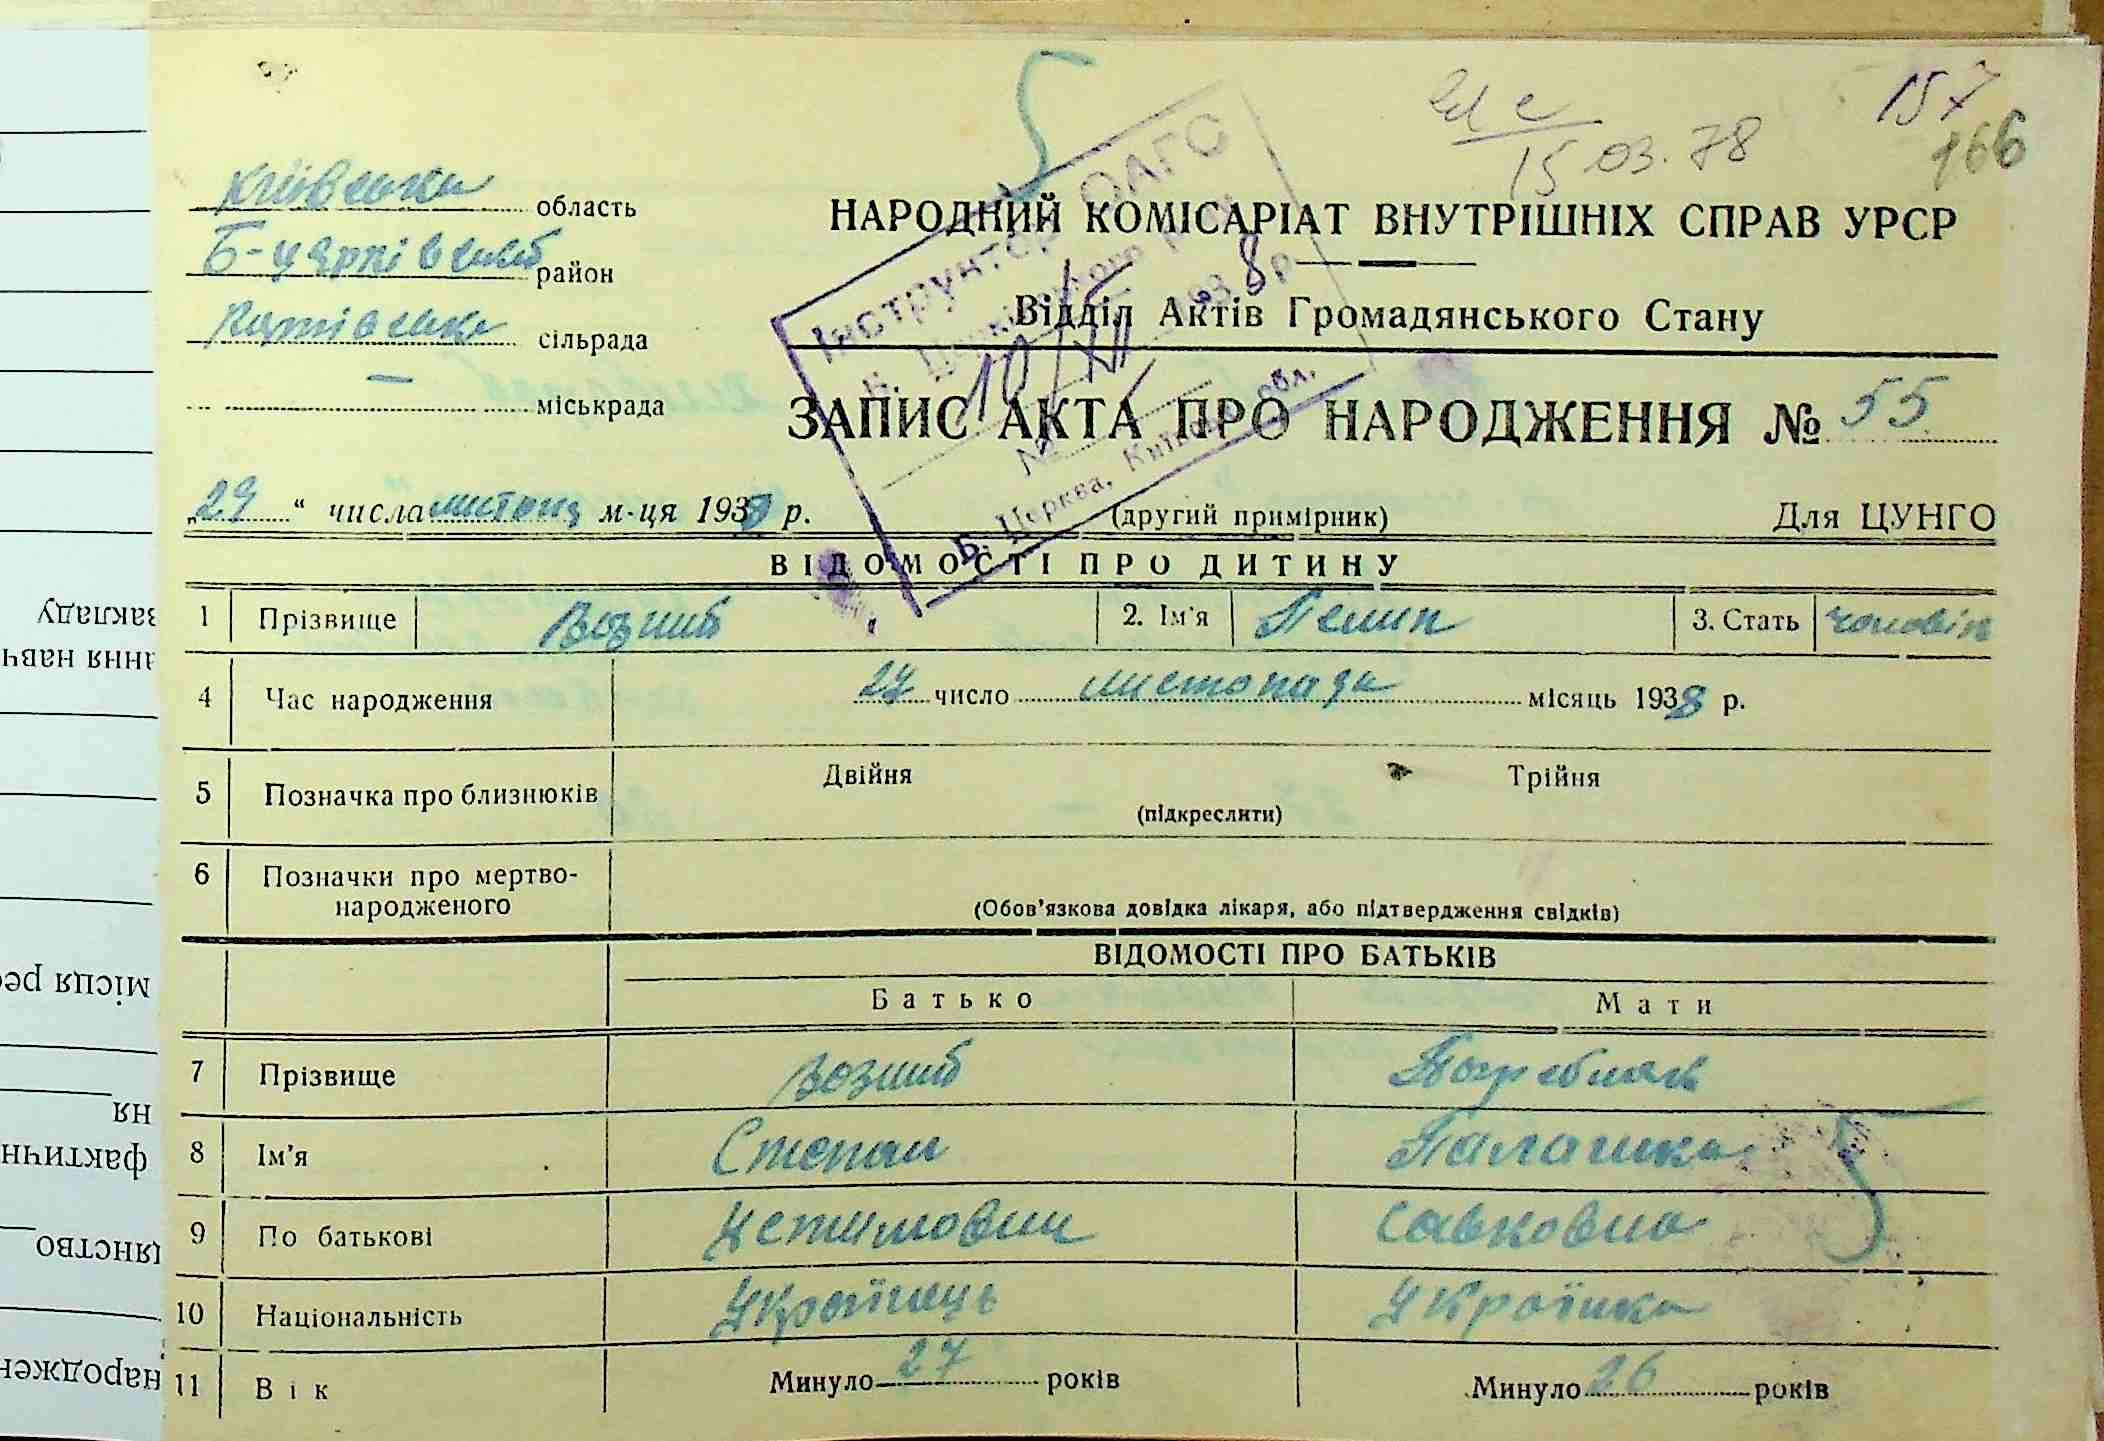 5
15.03.78
157
166
Київська область
Б-церківський район
сільрада
— міськрада
НАРОДНИЙ КОМІСАРІАТ ВНУТРІШНІХ СПРАВ УРСР
Відділ Актів Громадянського Стану
ЗАПИС АКТА ПРО НАРОДЖЕННЯ № 55
Інструктор ОАГС
10/XII 1938 р.
№
Б. Церква, Київськ. обл.
„29“ числа листопад м-ця 1938 р.
(другий примірник)
Для ЦУНГО
ВІДОМОСТІ ПРО ДИТИНУ
1 Прізвище Возний 2. Ім'я 3. Стать чоловіч
4 Час народження 27 число листопада місяць 1938 р.
5 Позначка про близнюків Двійня Трійня
(підкреслити)
6 Позначки про мертво-
народженого
(Обов'язкова довідка лікаря, або підтвердження свідків)
ВІДОМОСТІ ПРО БАТЬКІВ
Батько Мати
7 Прізвище Возний
8 Ім'я Степан Палашка
9 По батькові Устимович Савковна
10 Національність Українець Українка
11 Вік Минуло 27 років Минуло 26 років
5
закладу
ння навч
місця ре
ня
фактичн
янство
народжен